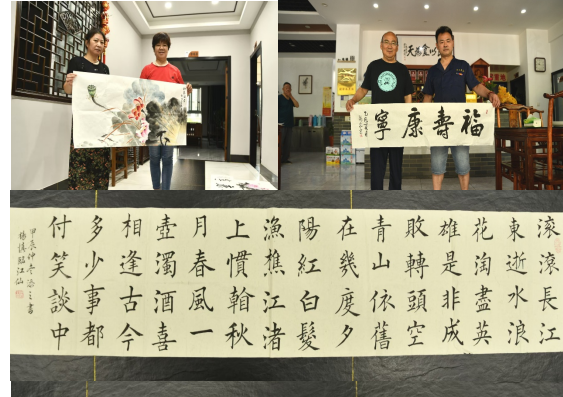 福壽康寧
滾滾長江
東逝水浪
花淘盡英
雄是非成
敗轉頭空
青山依舊
在幾度夕
陽紅白髮
漁樵江渚
上慣翰秋
月春風一
壺濁酒喜
相逢古今
多少事都
付笑談中
甲辰仲冬
楊慎臨江仙